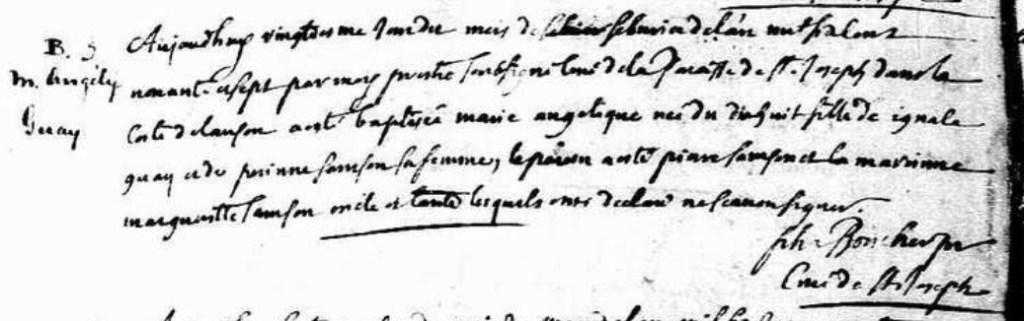 B. 5
m. Angely
Guay
Aujourdhuy vingtiesme Jour du mois de febvrier de lan mil six cent
nonante et sept par moy prestre soubsigné Curé de la Paroisse de St. Joseph dans la
Coste de lauson a esté baptisée marie angelique née du dixhuit fille de ignace
guay et de perinne samson sa femme, le parein a esté piere samson et la marrinne
margueritte samson oncle et tante lesquels ont declaré ne scavoir signer.
ph. Boucher ptr
Curé de St Joseph